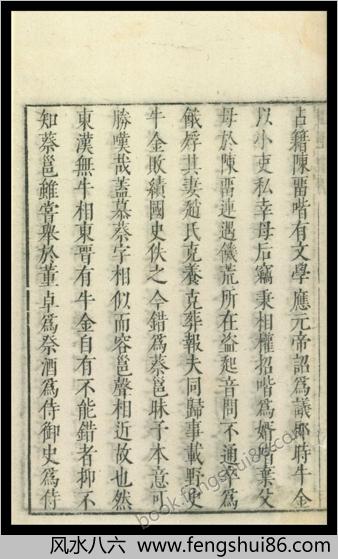 占籍陳畱喈有文學應元帝詔爲議郎時牛金
以小吏私幸母后竊秉相權招喈爲婿喈棄父
母於陳畱連遇饑荒所在溢起音問不通卒爲
餓殍其妻趙氏克養克葬報夫同歸事載野史
牛金敗績國史佚之今錯爲蔡邕昧子本意可
勝嘆哉蓋慕蔡字相似而容邕聲相近故也然
東漢無牛相東晋有牛金自有不能錯者抑不
知蔡邕雖嘗舉於董卓爲祭酒爲侍御史爲侍
book.fengshui86.com
风水八六 - www.fengshui86.com